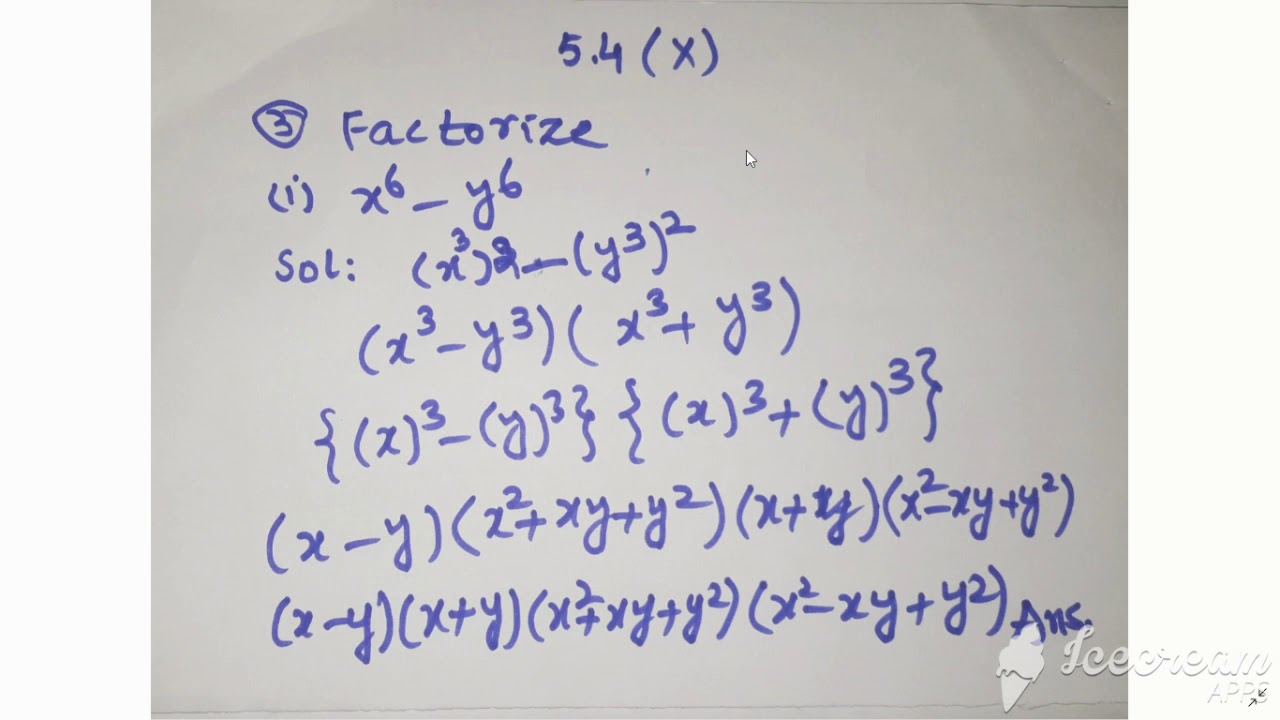 5.4 (X)
③ Factorize
(i) x⁶ - y⁶
Sol: (x³)² - (y³)²
(x³ - y³)(x³ + y³)
{(x)³ - (y)³} {(x)³ + (y)³}
(x - y)(x² + xy + y²)(x + y)(x² - xy + y²)
(x - y)(x + y)(x² + xy + y²)(x² - xy + y²) Ans.
Icecream
APPS